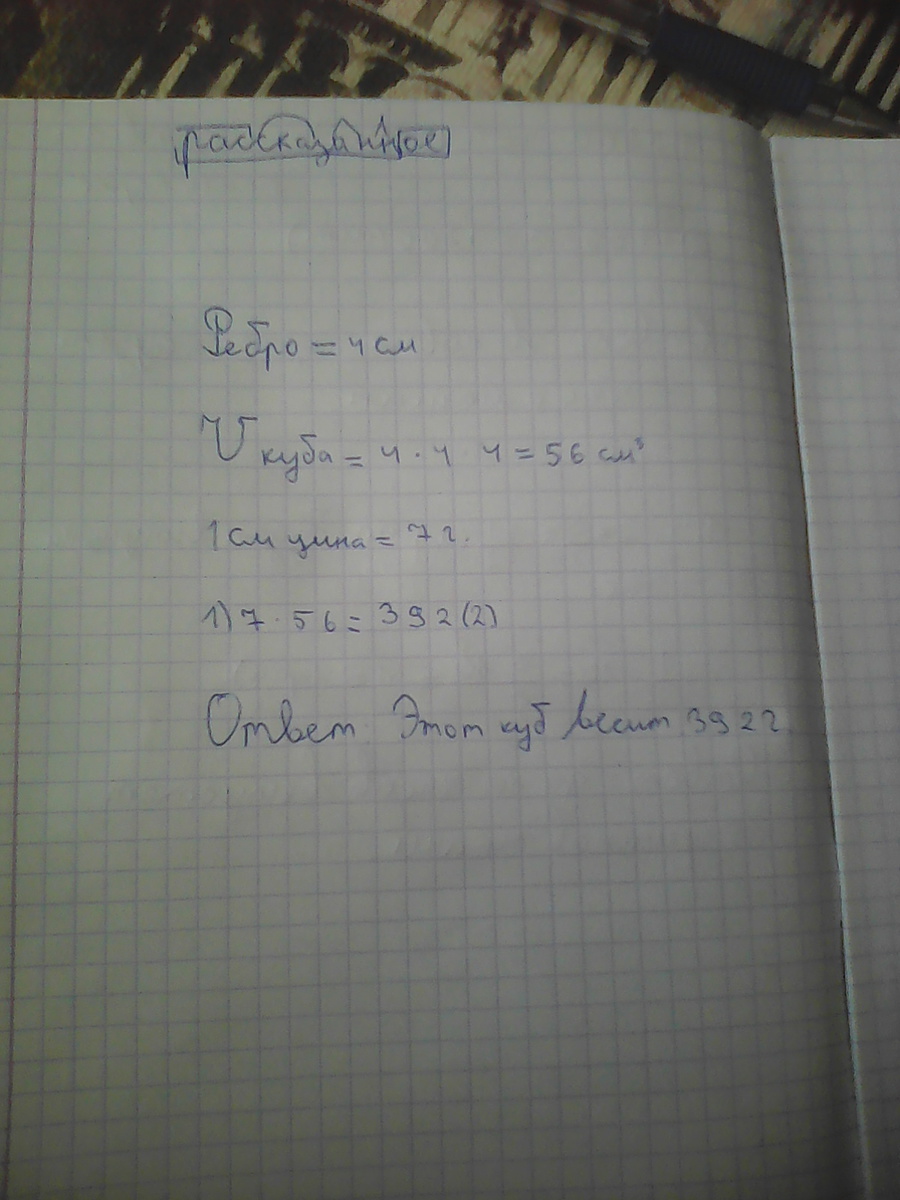 рассказанное
Ребро = 4 см
V куба = 4 · 4 4 = 56 см³
1 см цина = 7 г.
1) 7 · 56 = 392 (г)
Ответ Этот куб весит 392 г.